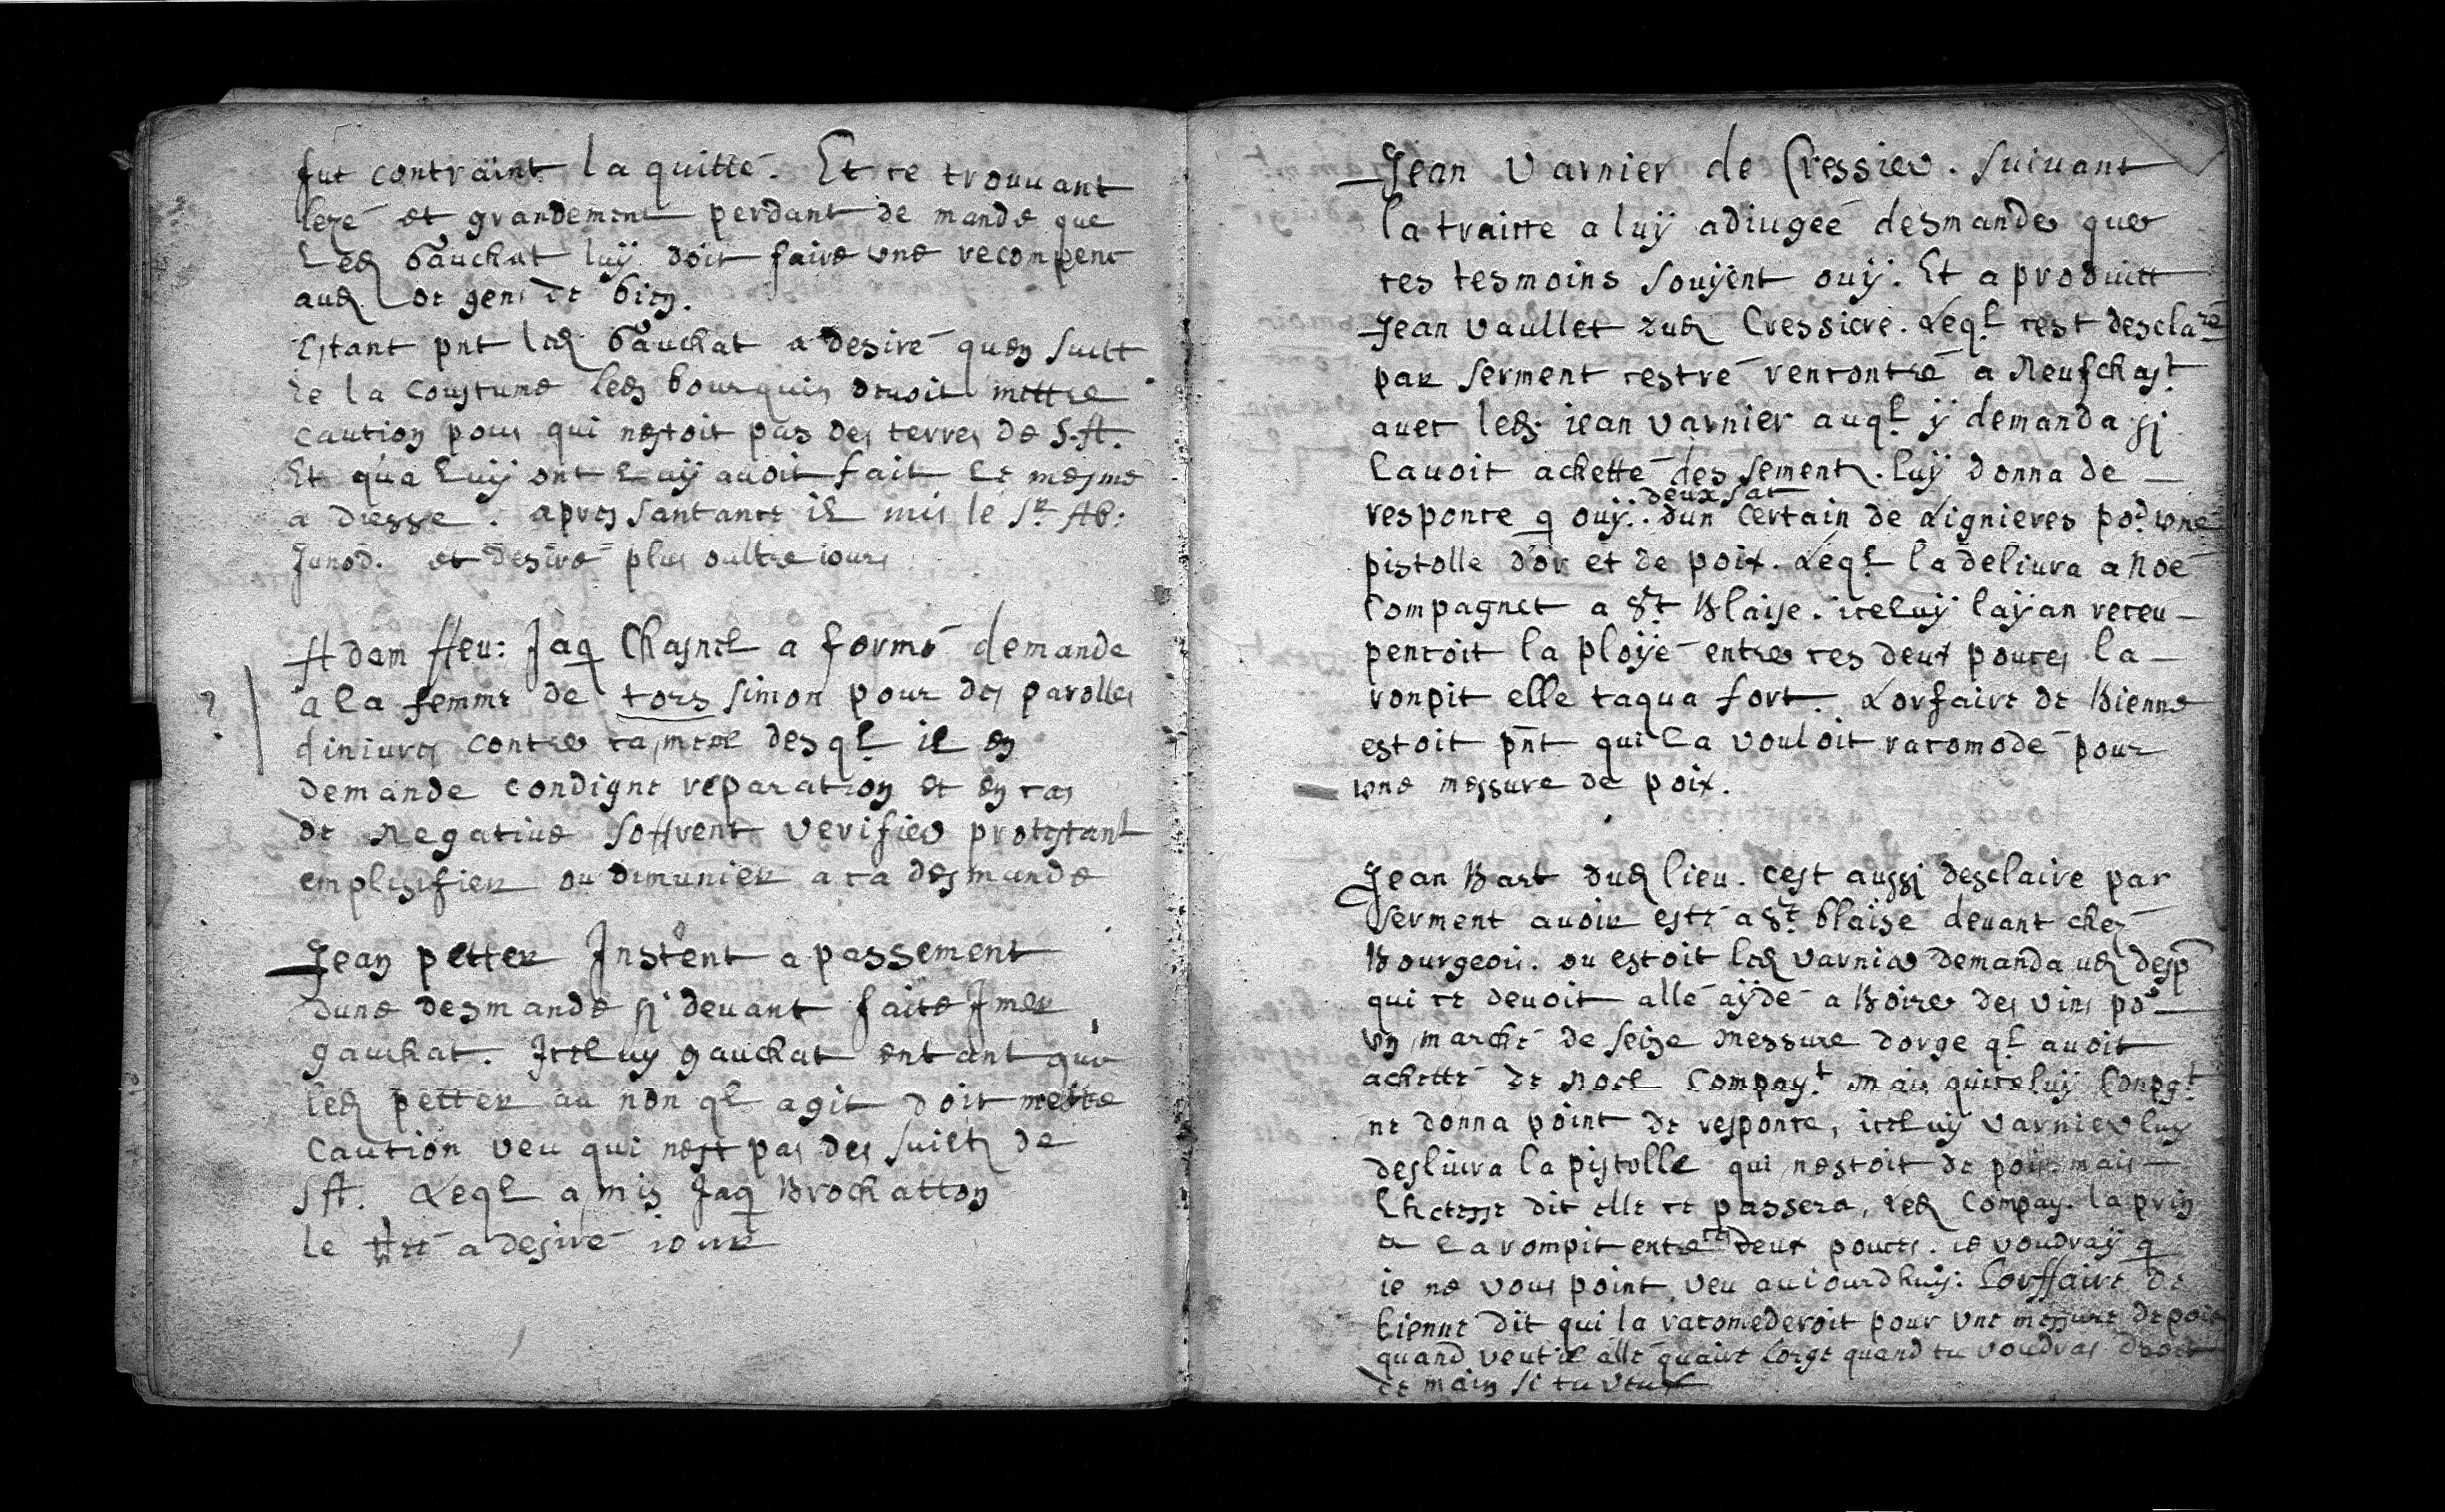 fut contraint la quitté. Et ce trouuant
lezé et grandement perdant demande que
Led Gauchat luÿ doit faire une recompence
aud de gens de bien.
Estant pnt led Gauchat a desiré quen suitt
de la coustume led bourquin deuoit mettre
caution pour qui nestoit pas des terres de S. A.
Et qua luÿ ont luÿ auoit fait le mesme
adresse. apres santance il mis le Sr Ab:
Junod. et desire plus oultre iours
Adam ffeu: Jaq Chasnel a formé demande
a la femme de tors simon pour des parolles
diniures contre sa mere desql il en
demande condigne reparation et en cas
de negatiue soffrent verifier protestant
emplisifier ou dimunier a sa desmande
Jean petter Instent a passement
dune desmande sj deuant faite Jmer
gauchat. Iceluy gauchat entant que
led petter au non ql agit doit mettre
caution veu qui nest pas des suiets de
S A. Leql a mis Jaq Brochatton
le a desiré iour
Jean Varnier de Cressier. suiuant
la traitte a luÿ adiugeé desmande que
ces tesmoins soÿent ouÿ. Et a produitt
Jean Vaullet dud Cressier. Leql cest desclaré
par serment cestre rencontré a Neufchast
auec led iean Varnier auql ÿ demanda sj
lauoit achetté des sement. luÿ donna de
responce q ouÿ.. deux sac dun certain de Lignieres por une
pistolle dor et de poix. Leql la deliura a Noé
Compagnet a St Blaise. iceluÿ laÿan receu
pencoit la ploÿé entre ces deux pouces la
ronpit elle caqua fort. Lorfaire de Bienne
estoit pnt qui la vouloit racomodé pour
une messure de poix.
Jean Bart dud lieu. cest aussj desclaire par
serment auoir esté a St blaise deuant chez
Bourgeois. ou estoit led varnier demanda ud desp
qui ce deuoit allé aÿdé a Boire des vins por
un marché de seize messure dorge ql auoit
achetté de Noel Compagt mais quiceluÿ Conpgt
ne donna point de responce, iceluÿ varnier luy
desliura la pistolle qui nestoit de pois mais
Lhotesse dit elle ce passera, Led Compag. la pris
et la rompit entre ces deux pouces. ie voudraÿ q
ie ne vous point veu auiourdhuÿ: Lorffaire de
bienne dit qui la racomederoit pour une messure de pois
quand veut il allé quaire lorge quand tu voudras
demain si tu veux